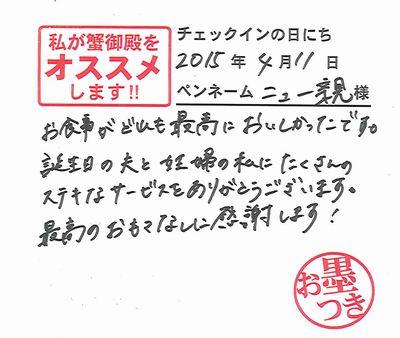 私が蟹御殿を
オススメ
します!!
チェックインの日にち
2015年 4月11日
ペンネーム ニュー親様
お食事がどれも最高においしかったです。
誕生日の夫と妊婦の私にたくさんの
ステキなサービスをありがとうございます。
最高のおもてなしに感謝します!
お墨つき